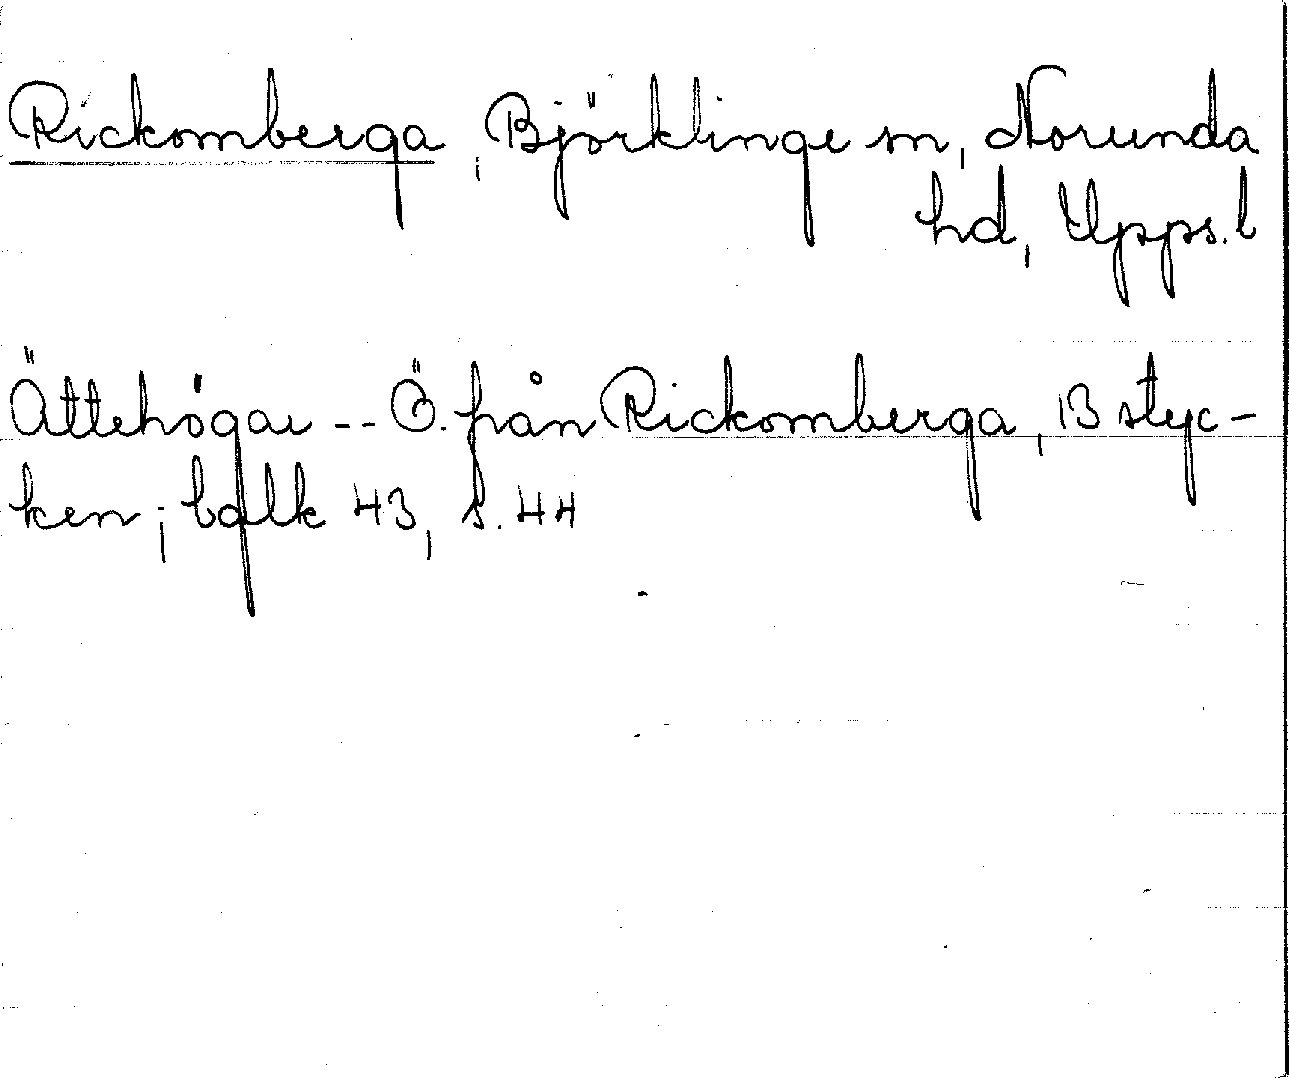 Rickomberga, Björklinge sn, Norunda
hd, Upps. l
Ättehögar -- Ö. från Rickomberga, 13 styc-
ken; balk 43, s. 44